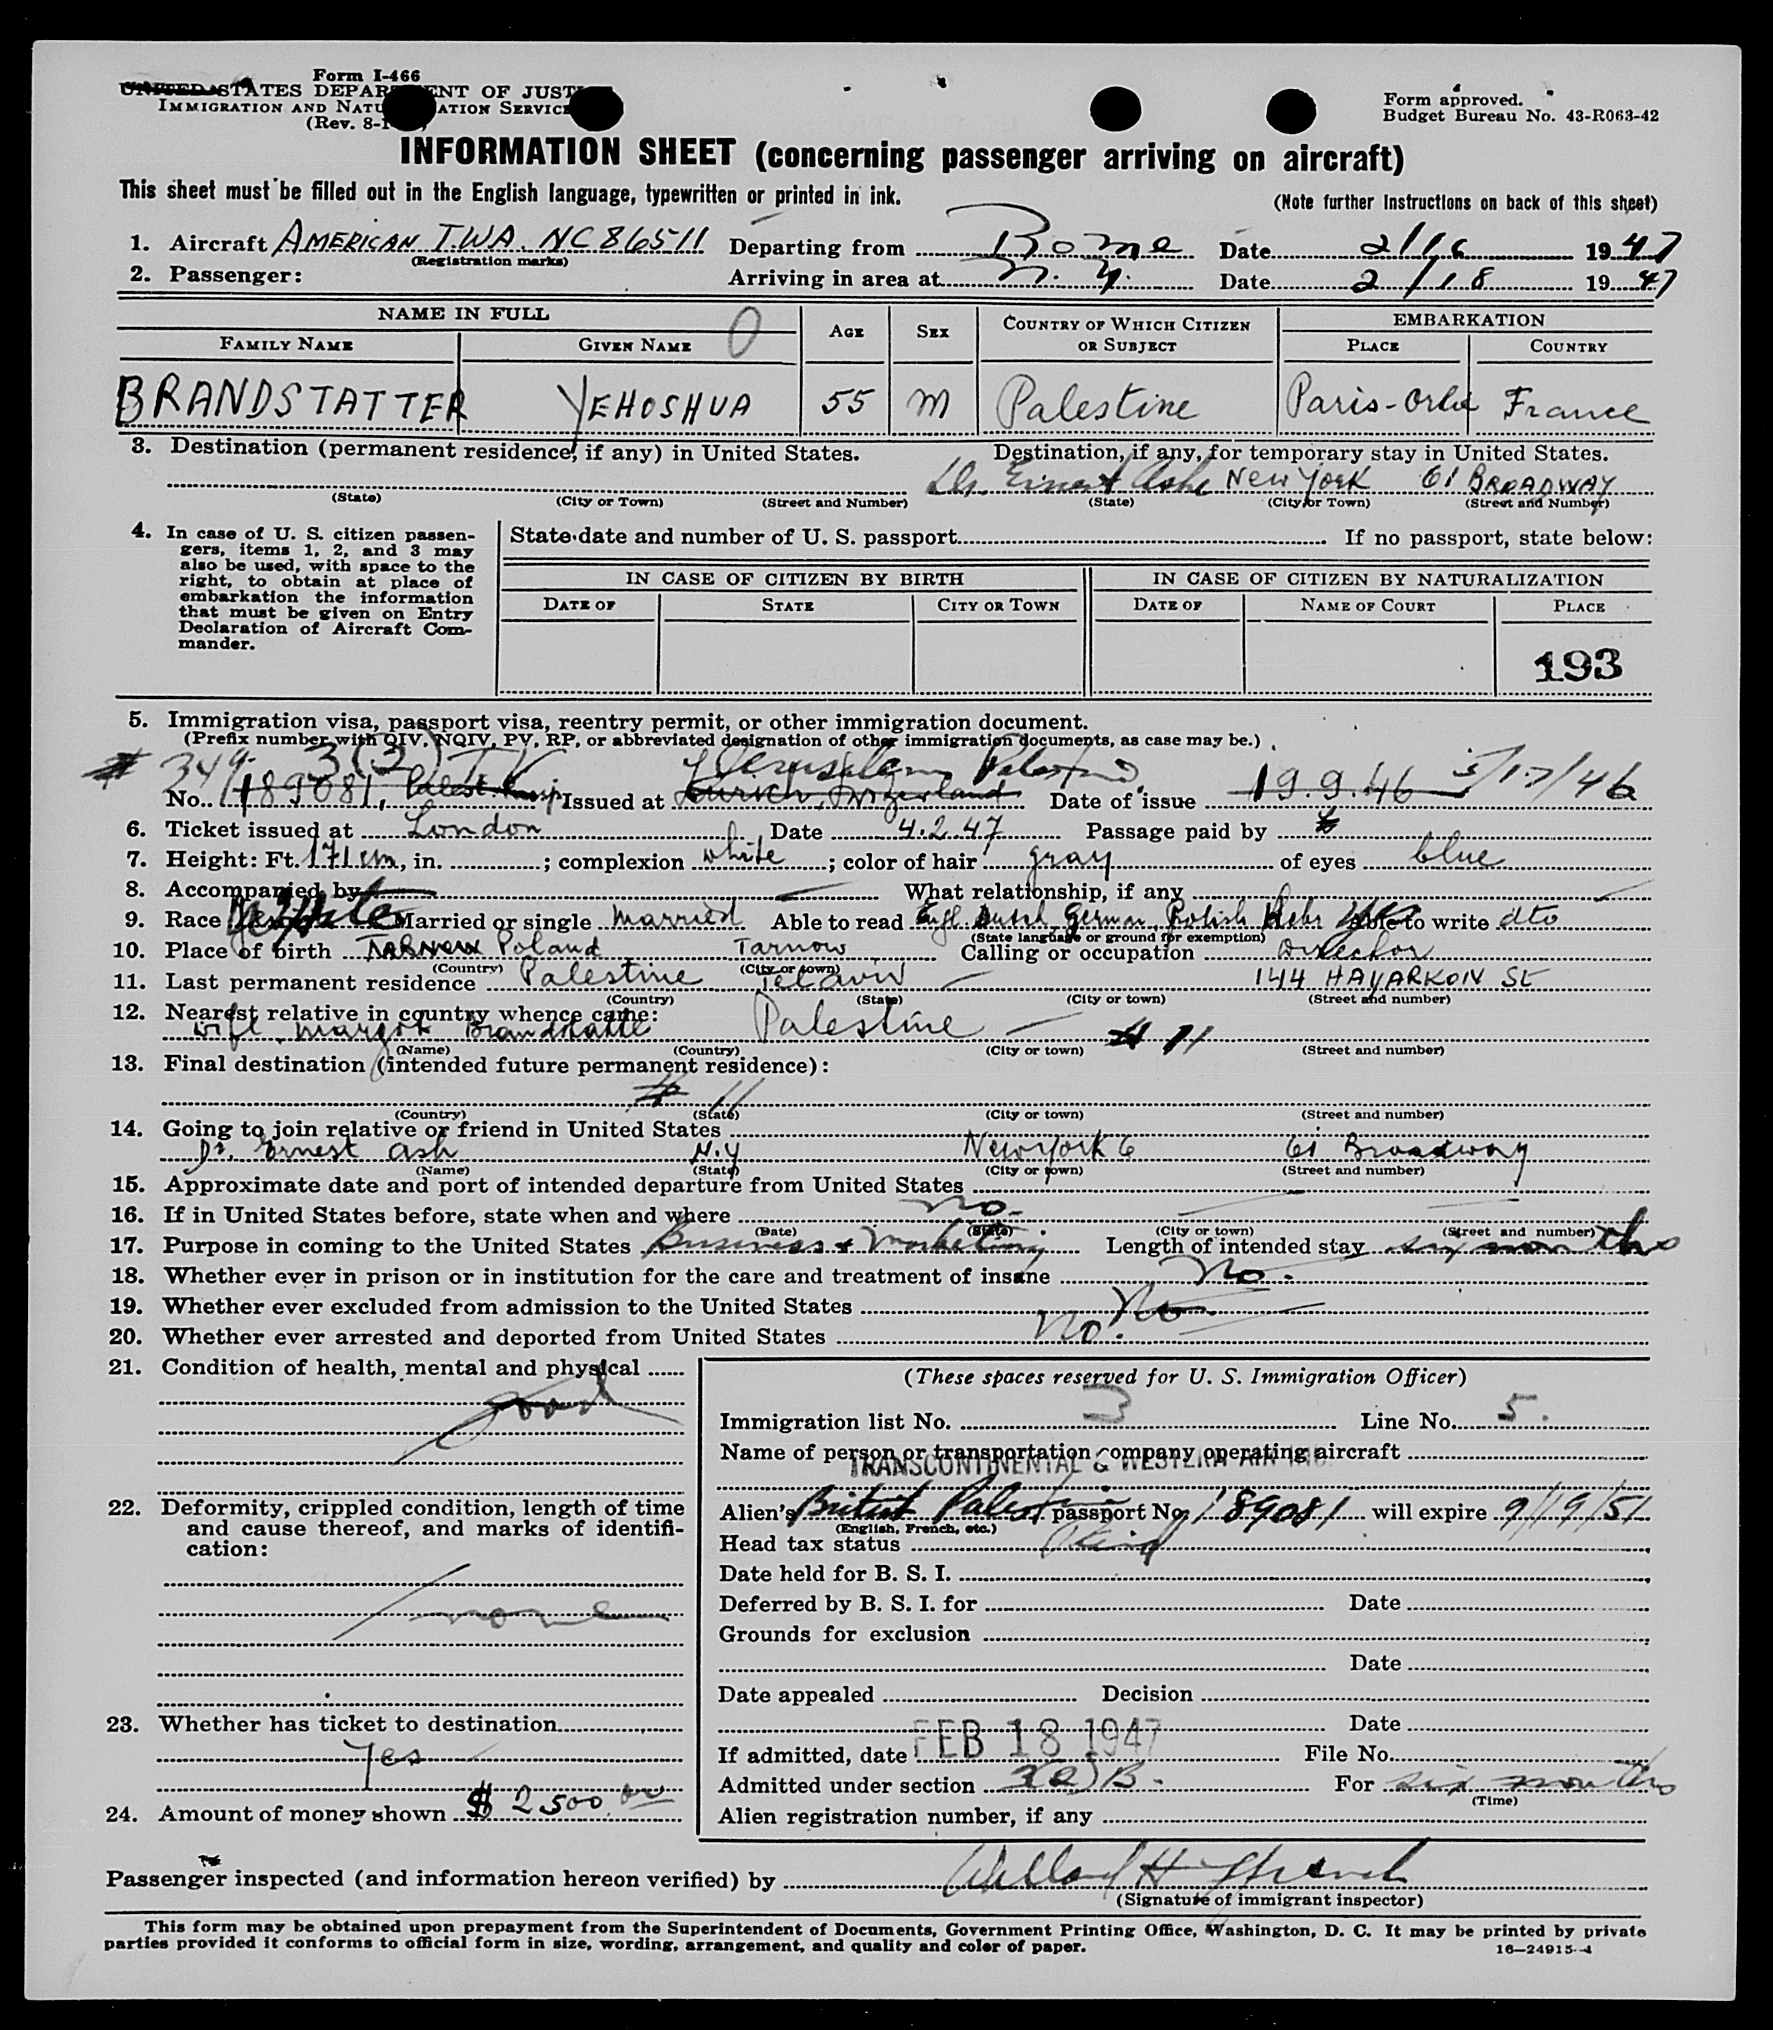 Form I-466
UNITED STATES DEPARTMENT OF JUSTICE
IMMIGRATION AND NATURALIZATION SERVICE
(Rev. 8-1
Form approved.
Budget Bureau No. 43-R063-42
INFORMATION SHEET (concerning passenger arriving on aircraft)
This sheet must be filled out in the English language, typewritten or printed in ink.
(Note further instructions on back of this sheet)
1. Aircraft AMERICAN TWA NC 86511 Departing from Rome Date 2/16 1947
(Registration marks)
2. Passenger: Arriving in area at N. Y. Date 2/18 1947
NAME IN FULL O AGE SEX COUNTRY OF WHICH CITIZEN OR SUBJECT EMBARKATION
FAMILY NAME GIVEN NAME PLACE COUNTRY
BRANDSTATTER YEHOSHUA 55 M Palestine Paris-Orly France
3. Destination (permanent residence, if any) in United States. Destination, if any, for temporary stay in United States.
Dr. Ernest Ashe New York 61 BROADWAY
(State) (City or Town) (Street and Number) (State) (City or Town) (Street and Number)
4. In case of U. S. citizen passen-
gers, items 1, 2, and 3 may
also be used, with space to the
right, to obtain at place of
embarkation the information
that must be given on Entry
Declaration of Aircraft Com-
mander.
State date and number of U. S. passport If no passport, state below:
IN CASE OF CITIZEN BY BIRTH IN CASE OF CITIZEN BY NATURALIZATION
DATE OF STATE CITY OR TOWN DATE OF NAME OF COURT PLACE
193
5. Immigration visa, passport visa, reentry permit, or other immigration document.
(Prefix number with QIV, NQIV, PV, RP, or abbreviated designation of other immigration documents, as case may be.)
# 349 3(2) TV Jerusalem Palestine 5/17/46
No. 189081, Palest. Issued at Zurich, Switzerland Date of issue 19.9.46
6. Ticket issued at London Date 4.2.47 Passage paid by
7. Height: Ft. 171 cm, in. ; complexion white ; color of hair gray of eyes blue
8. Accompanied by What relationship, if any
9. Race White Married or single married Able to read Engl. Dutch, German, Polish Hebr Able to write dto
(State language or ground for exemption)
10. Place of birth TARNOW Poland Tarnow Calling or occupation Director
(Country) (City or town)
11. Last permanent residence Palestine Tel aviv 144 HAYARKON St
(Country) (State) (City or town) (Street and number)
12. Nearest relative in country whence came:
wife Margot Brandstatter Palestine # 11
(Name) (Country) (City or town) (Street and number)
13. Final destination (intended future permanent residence):
# 11
(Country) (State) (City or town) (Street and number)
14. Going to join relative or friend in United States
Dr. Ernest Ash N.Y New York 6 61 Broadway
(Name) (State) (City or town) (Street and number)
15. Approximate date and port of intended departure from United States
16. If in United States before, state when and where no.
(Date) (State) (City or town) (Street and number)
17. Purpose in coming to the United States Business & Marketing Length of intended stay six months
18. Whether ever in prison or in institution for the care and treatment of insane No.
19. Whether ever excluded from admission to the United States No
20. Whether ever arrested and deported from United States No.
21. Condition of health, mental and physical
good
22. Deformity, crippled condition, length of time
and cause thereof, and marks of identifi-
cation:
none
23. Whether has ticket to destination
Yes
24. Amount of money shown $ 2500
(These spaces reserved for U. S. Immigration Officer)
Immigration list No. 3 Line No. 5.
Name of person or transportation company operating aircraft
TRANSCONTINENTAL & WESTERN AIR INC.
Alien's British Palestine passport No. 189081 will expire 9/19/51
(English, French, etc.)
Head tax status
Date held for B. S. I.
Deferred by B. S. I. for Date
Grounds for exclusion
Date
Date appealed Decision
Date
If admitted, date FEB 18 1947 File No.
Admitted under section 3(2)B. For six months
(Time)
Alien registration number, if any
Passenger inspected (and information hereon verified) by Willard H
(Signature of immigrant inspector)
This form may be obtained upon prepayment from the Superintendent of Documents, Government Printing Office, Washington, D. C. It may be printed by private
parties provided it conforms to official form in size, wording, arrangement, and quality and color of paper.
16—24915-4